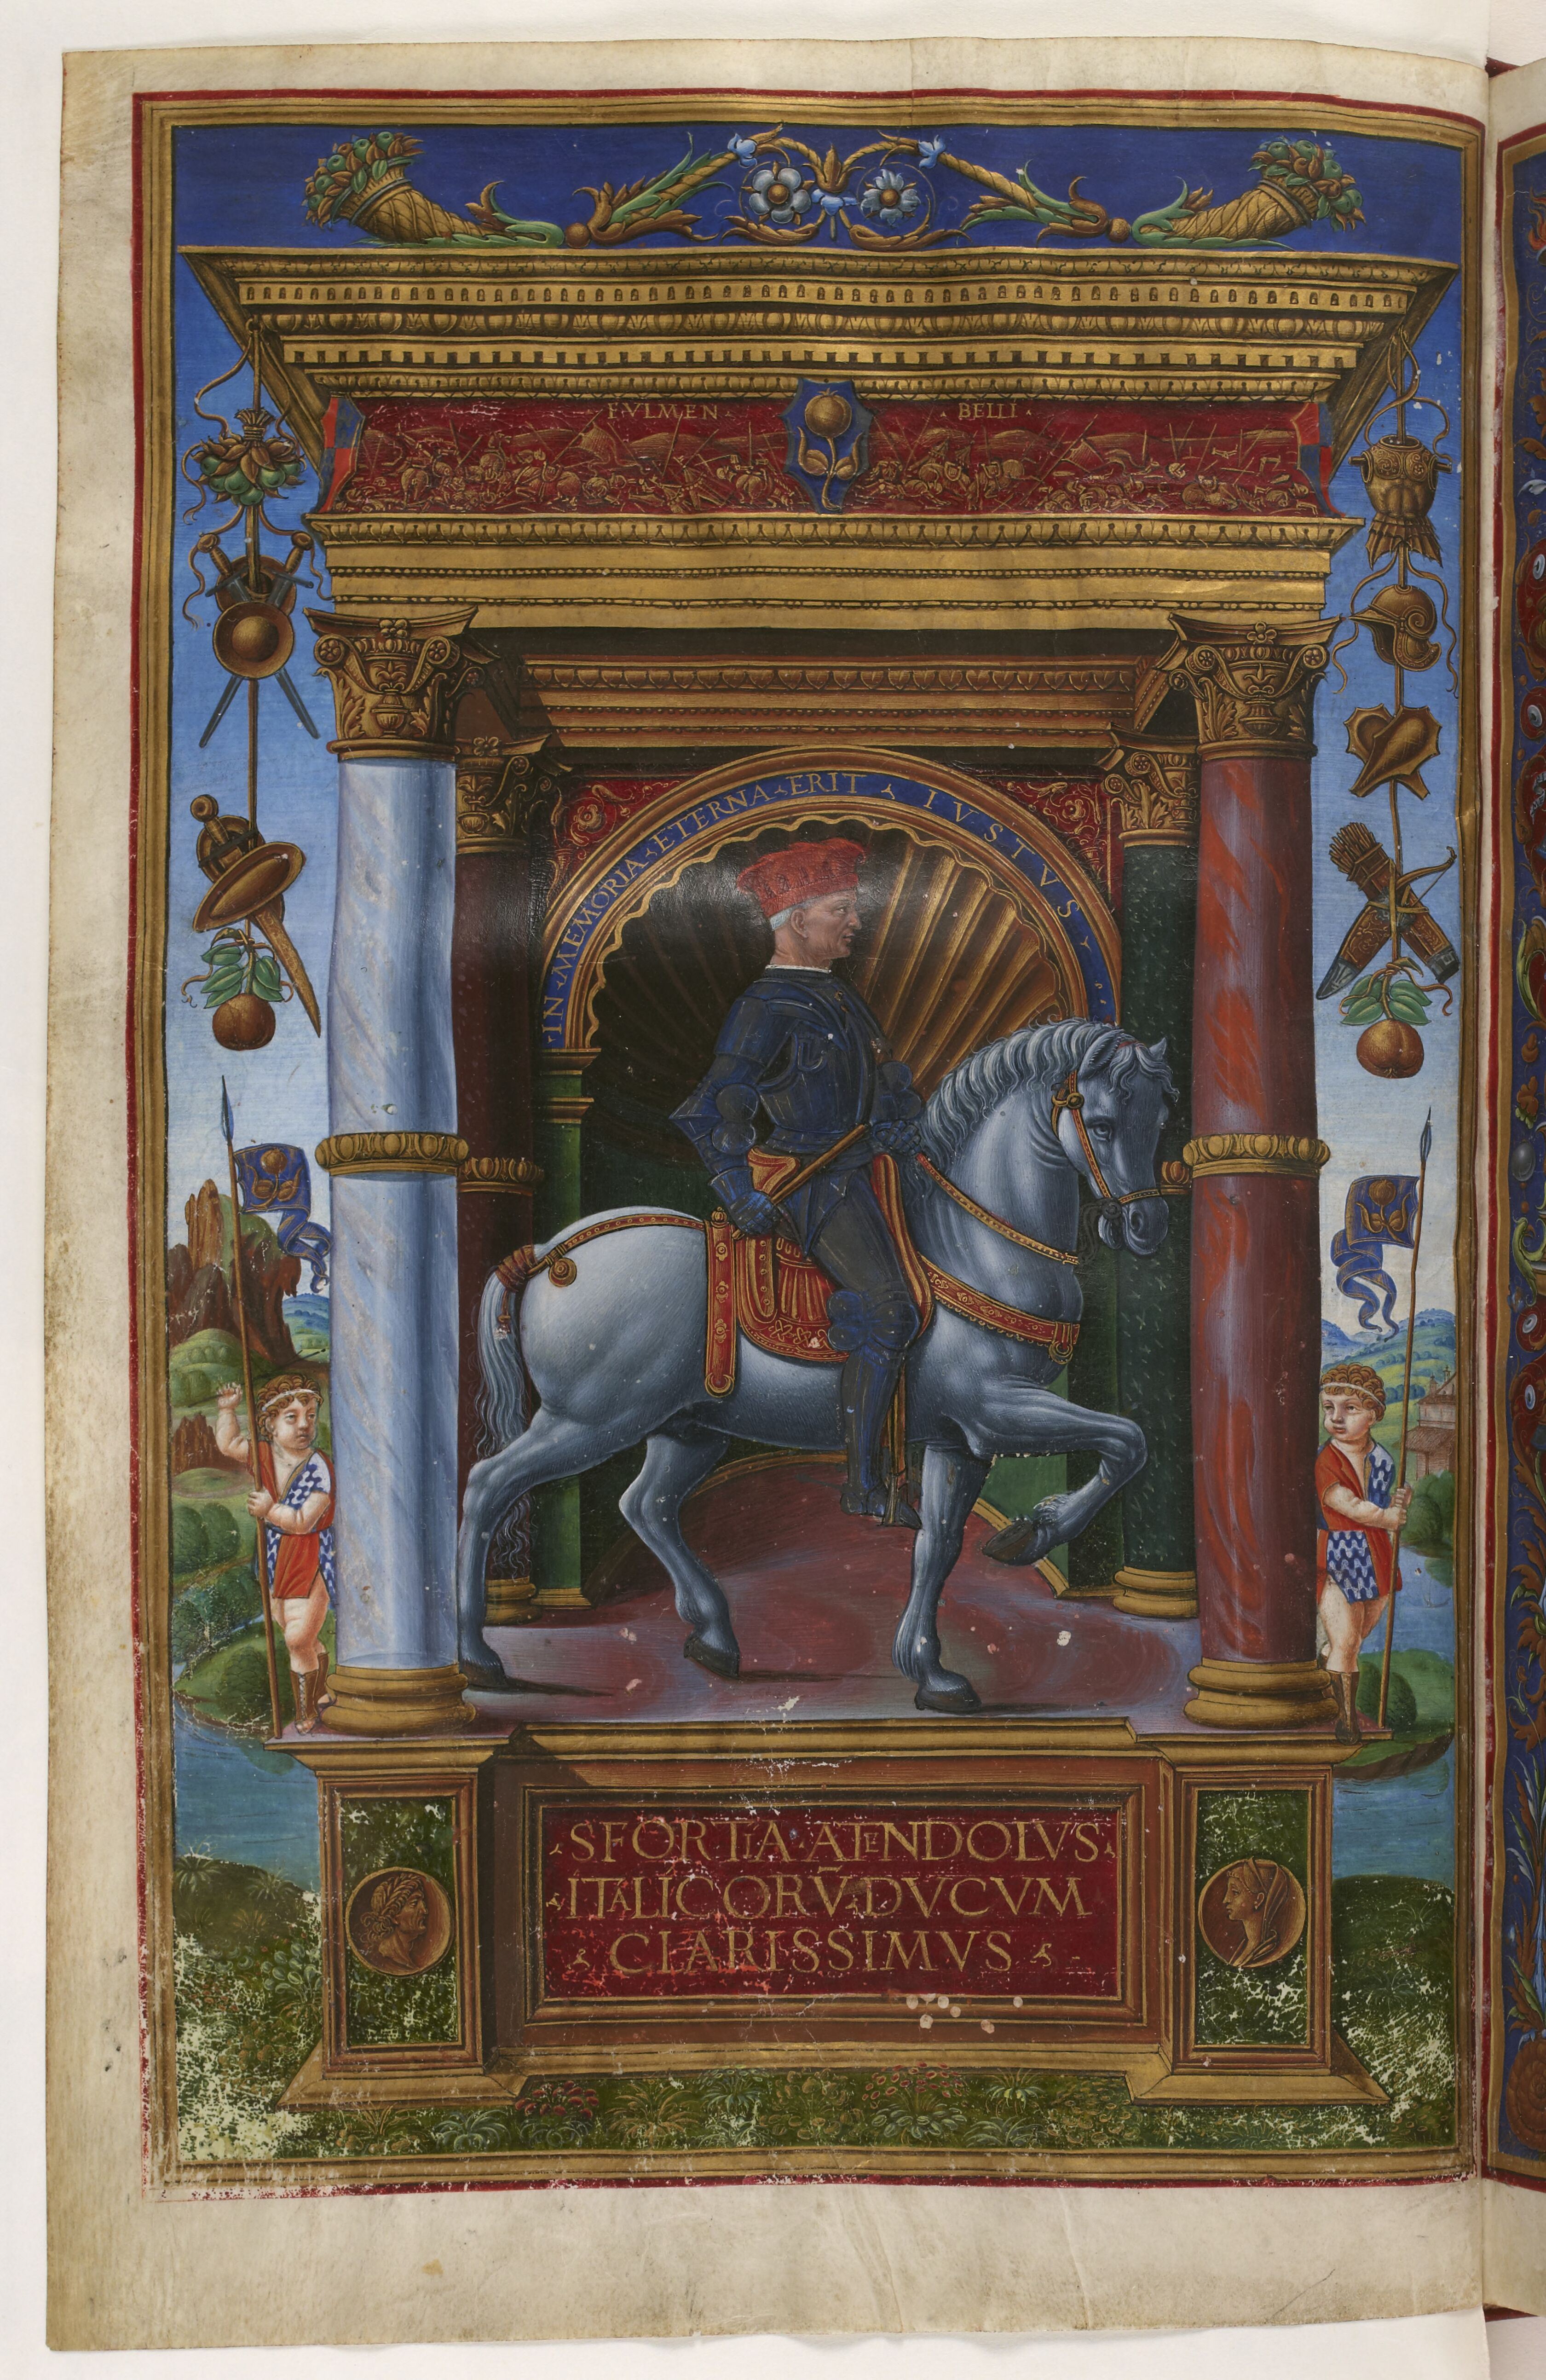 FVLMEN · BELLI ·
· IN · MEMORIA · ETERNA · ERIT · IVSTVS ·
· SFORTIA · ATENDOLVS ·
· ITALICORV̄ · DVCVM
· CLARISSIMVS ·